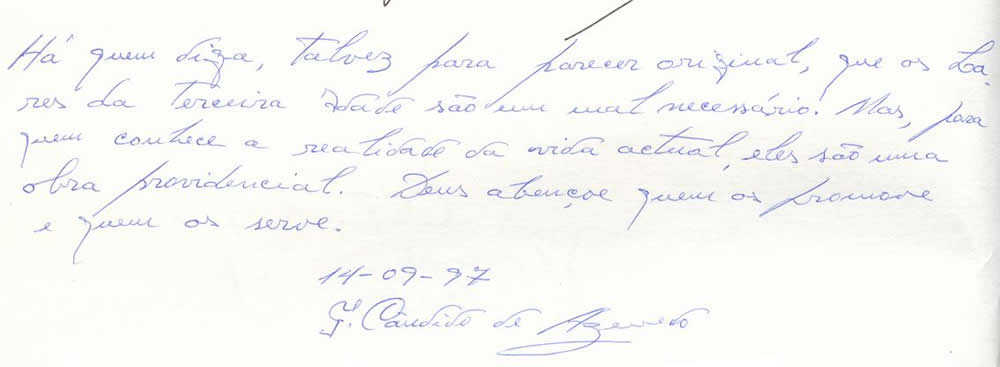 Há quem diga, talvez para parecer original, que os La-
res da terceira Idade são um mal necessário! Mas, para
quem conhece a realidade da vida actual, eles são uma
obra providencial. Deus abençoe quem os promove
e quem os serve.
14-09-97
Cândido de Azevedo